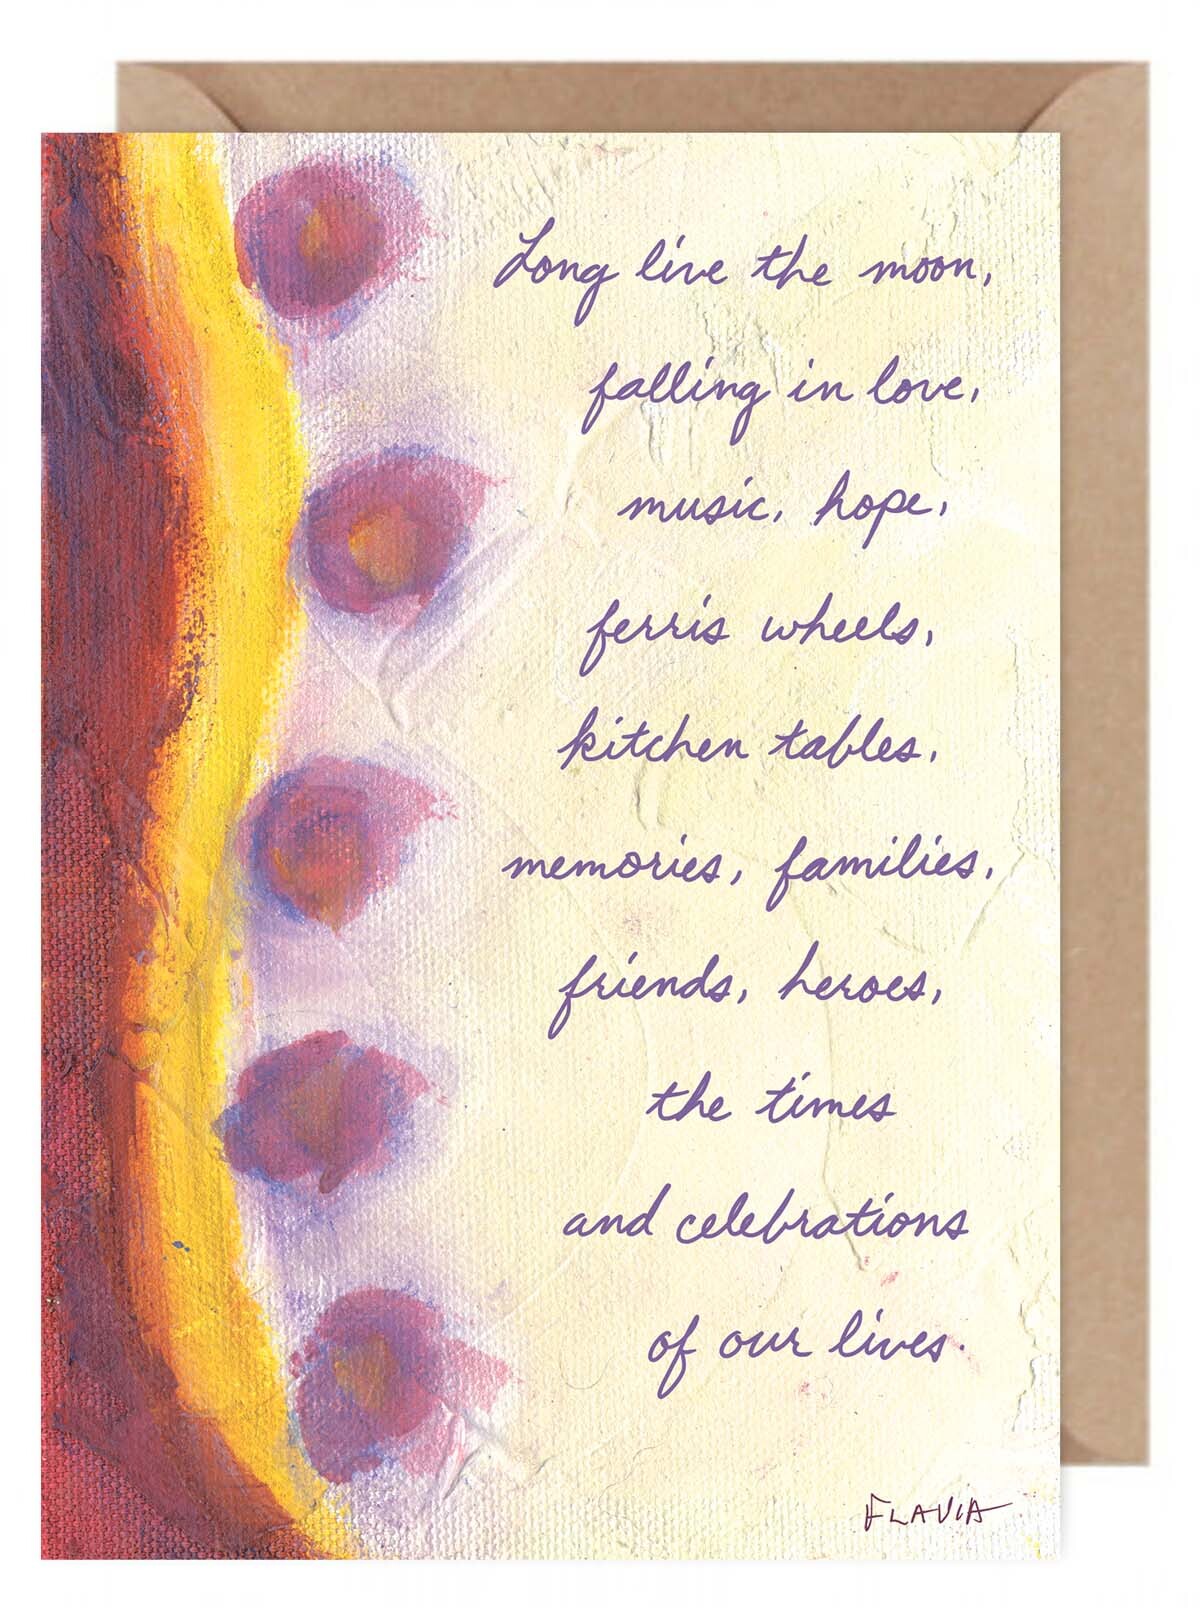 Long live the moon,
falling in love,
music, hope,
ferris wheels,
kitchen tables,
memories, families,
friends, heroes,
the times
and celebrations
of our lives.
FLAVIA